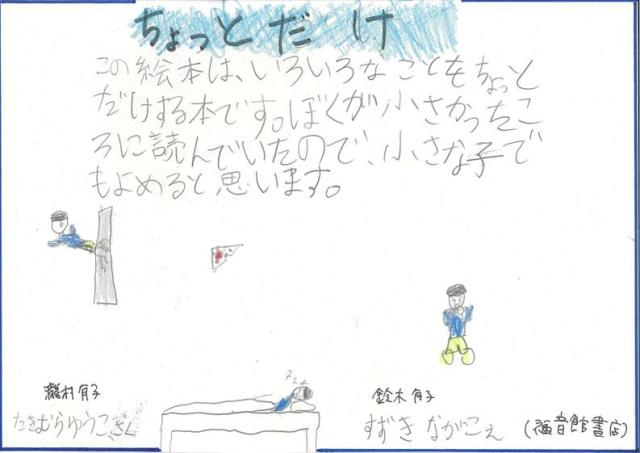 ちょっとだけ
この絵本は、いろいろなことをちょっと
だけする本です。ぼくが小さかったこ
ろに読んでいたので、小さな子で
もよめると思います。
zzz
瀧村有子
たきむらゆうこさく
鈴木 
すずき ながこえ
(福音館書店)